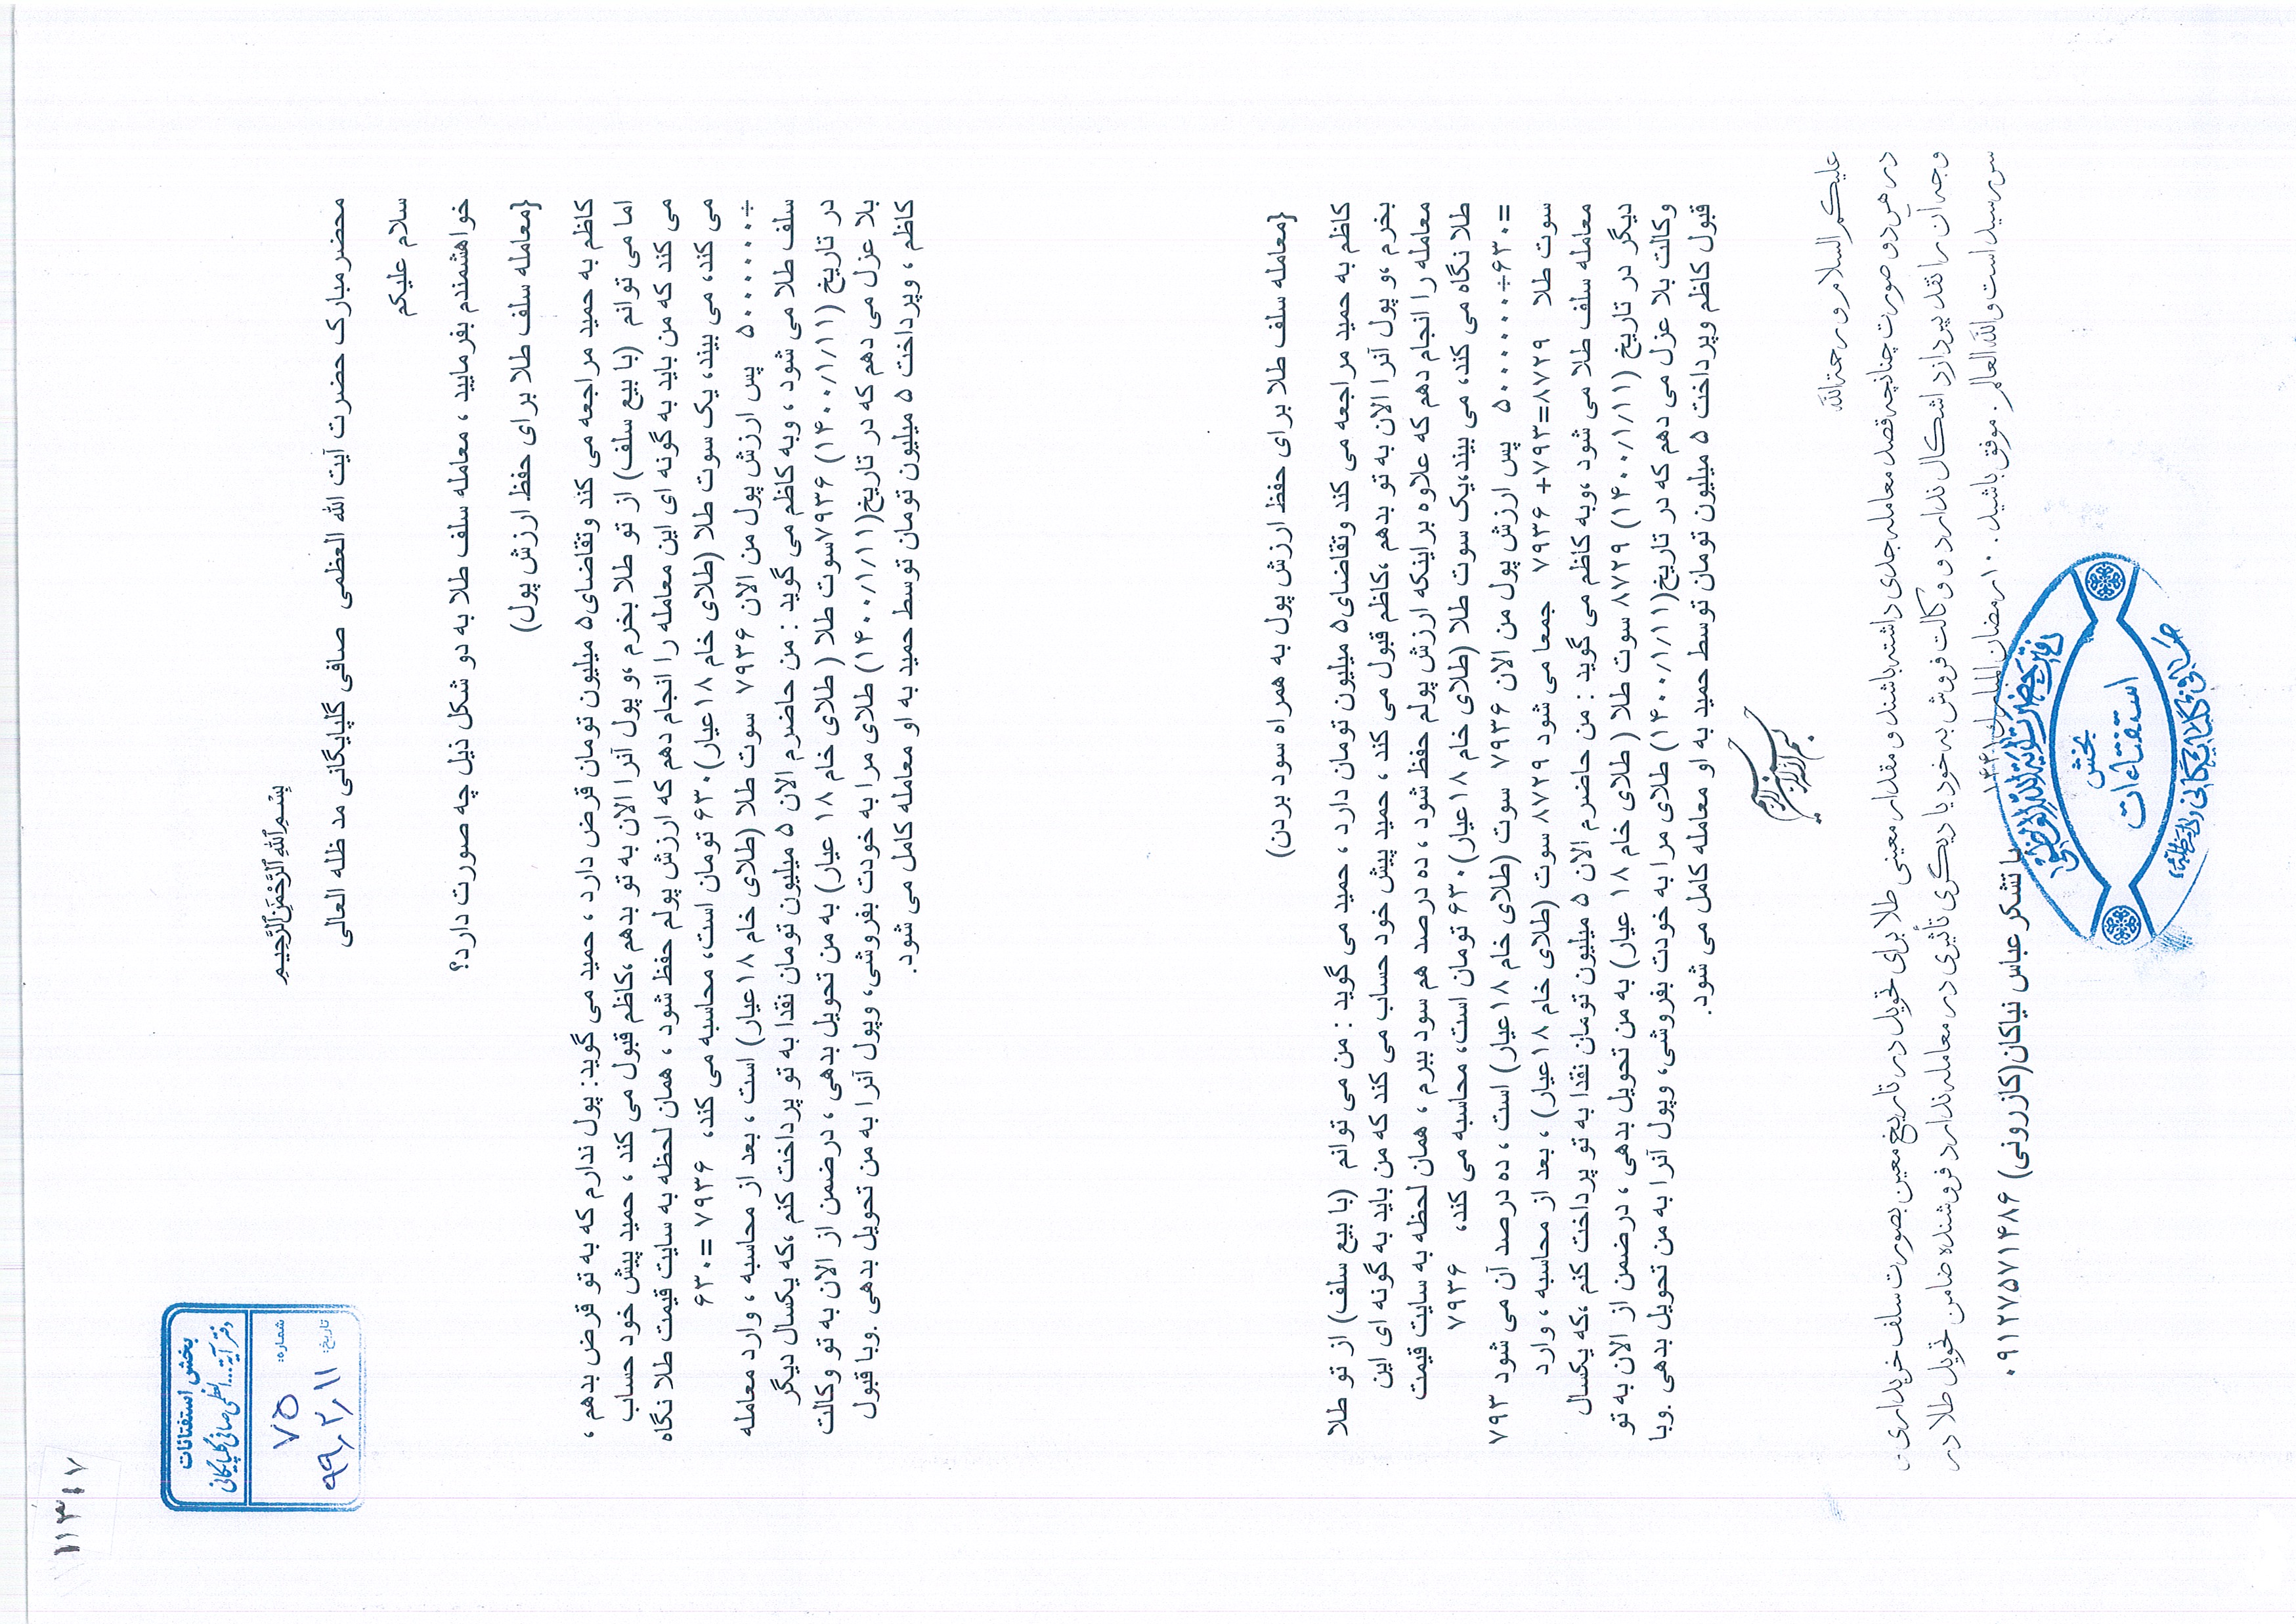 ۱۱۳۱۷
بخش استفتائات
دفتر آیة... العظمی صافی گلپایگانی
شماره: ۷۵
تاریخ: ۹۹/۲/۱۱
بِسْمِ اللهِ الرَّحْمنِ الرَّحِیمِ
محضر مبارک حضرت آیت الله العظمی صافی گلپایگانی مد ظله العالی
سلام علیکم
خواهشمندم بفرمایید ، معامله سلف طلا به دو شکل ذیل چه صورت دارد؟
{معامله سلف طلا برای حفظ ارزش پول)
کاظم به حمید مراجعه می کند وتقاضای۵ میلیون تومان قرض دارد ، حمید می گوید: پول ندارم که به تو قرض بدهم ،
اما می توانم (با بیع سلف) از تو طلا بخرم ،و پول آنرا الان به تو بدهم ،کاظم قبول می کند ، حمید پیش خود حساب
می کند که من باید به گونه ای این معامله را انجام دهم که ارزش پولم حفظ شود ، همان لحظه به سایت قیمت طلا نگاه
می کند، می بیند، یک سوت طلا (طلای خام ۱۸عیار)۶۳۰ تومان است، محاسبه می کند، ۷۹۳۶ =۶۳۰
÷۵۰۰۰۰۰۰ پس ارزش پول من الان ۷۹۳۶ سوت طلا (طلای خام ۱۸عیار) است ، بعد از محاسبه ، وارد معامله
سلف طلا می شود ، وبه کاظم می گوید : من حاضرم الان ۵ میلیون تومان نقدا به تو پرداخت کنم ،که یکسال دیگر
در تاریخ (۱۴۰۰/۱/۱۱) ۷۹۳۶سوت طلا ( طلای خام ۱۸ عیار) به من تحویل بدهی ، درضمن از الان به تو وکالت
بلا عزل می دهم که در تاریخ(۱۴۰۰/۱/۱۱) طلای مرا به خودت بفروشی، وپول آنرا به من تحویل بدهی .وبا قبول
کاظم ، وپرداخت ۵ میلیون تومان توسط حمید به او معامله کامل می شود.
{معامله سلف طلا برای حفظ ارزش پول به همراه سود بردن)
کاظم به حمید مراجعه می کند وتقاضای۵ میلیون تومان دارد ، حمید می گوید : من می توانم (با بیع سلف) از تو طلا
بخرم ،و پول آنرا الان به تو بدهم ،کاظم قبول می کند ، حمید پیش خود حساب می کند که من باید به گونه ای این
معامله را انجام دهم که علاوه براینکه ارزش پولم حفظ شود ، ده درصد هم سود ببرم ، همان لحظه به سایت قیمت
طلا نگاه می کند، می بیند،یک سوت طلا (طلای خام ۱۸عیار)۶۳۰ تومان است، محاسبه می کند، ۷۹۳۶
=۶۳۰÷۵۰۰۰۰۰۰ پس ارزش پول من الان ۷۹۳۶ سوت (طلای خام ۱۸عیار) است ، ده درصد آن می شود ۷۹۳
سوت طلا ۸۷۲۹=۷۹۳+۷۹۳۶ جمعا می شود ۸۷۲۹ سوت (طلای خام ۱۸عیار) ، بعد از محاسبه ، وارد
معامله سلف طلا می شود ،وبه کاظم می گوید : من حاضرم الان ۵ میلیون تومان نقدا به تو پرداخت کنم ،که یکسال
دیگر در تاریخ (۱۴۰۰/۱/۱۱) ۸۷۲۹ سوت طلا ( طلای خام ۱۸ عیار) به من تحویل بدهی ، درضمن از الان به تو
وکالت بلا عزل می دهم که در تاریخ(۱۴۰۰/۱/۱۱) طلای مرا به خودت بفروشی، وپول آنرا به من تحویل بدهی .وبا
قبول کاظم وپرداخت ۵ میلیون تومان توسط حمید به او معامله کامل می شود.
بسم الله الرحمن الرحیم
علیکم السلام و رحمة الله
در هر دو صورت چنانچه قصد معامله جدی داشته باشند و مقدار معینی طلا برای تحویل در تاریخ معین بصورت سلف خریداری و
وجه آن را نقد بپردازد اشکال ندارد و وکالت فروش به خود یا دیگری تأثیری در معامله ندارد فروشنده ضامن تحویل طلا در
سر رسید است والله العالم. موفق باشید. ۱۰ رمضان المبارک ۱۴۴۱
با تشکر عباس نیاکان(کازرونی) ۰۹۱۲۷۵۷۱۴۸۶
دفتر حضرت آیة الله العظمی
بخش
استفتاءات
صافی گلپایگانی مدظله